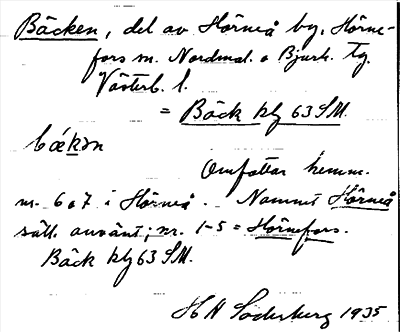 Bäcken, del av Hörneå by, Hörne-
fors sn. Nordmal. o Bjurh. tg.
Västerb. l.
= Bäck klg 63 SM.
bǽkən
Omfattar hemm.
nr. 6 o 7 i Hörneå. Namnet Hörneå
sält. använt; nr. 1-5 = Hörnefors.
Bäck klg 63 SM.
H N Söderberg 1935